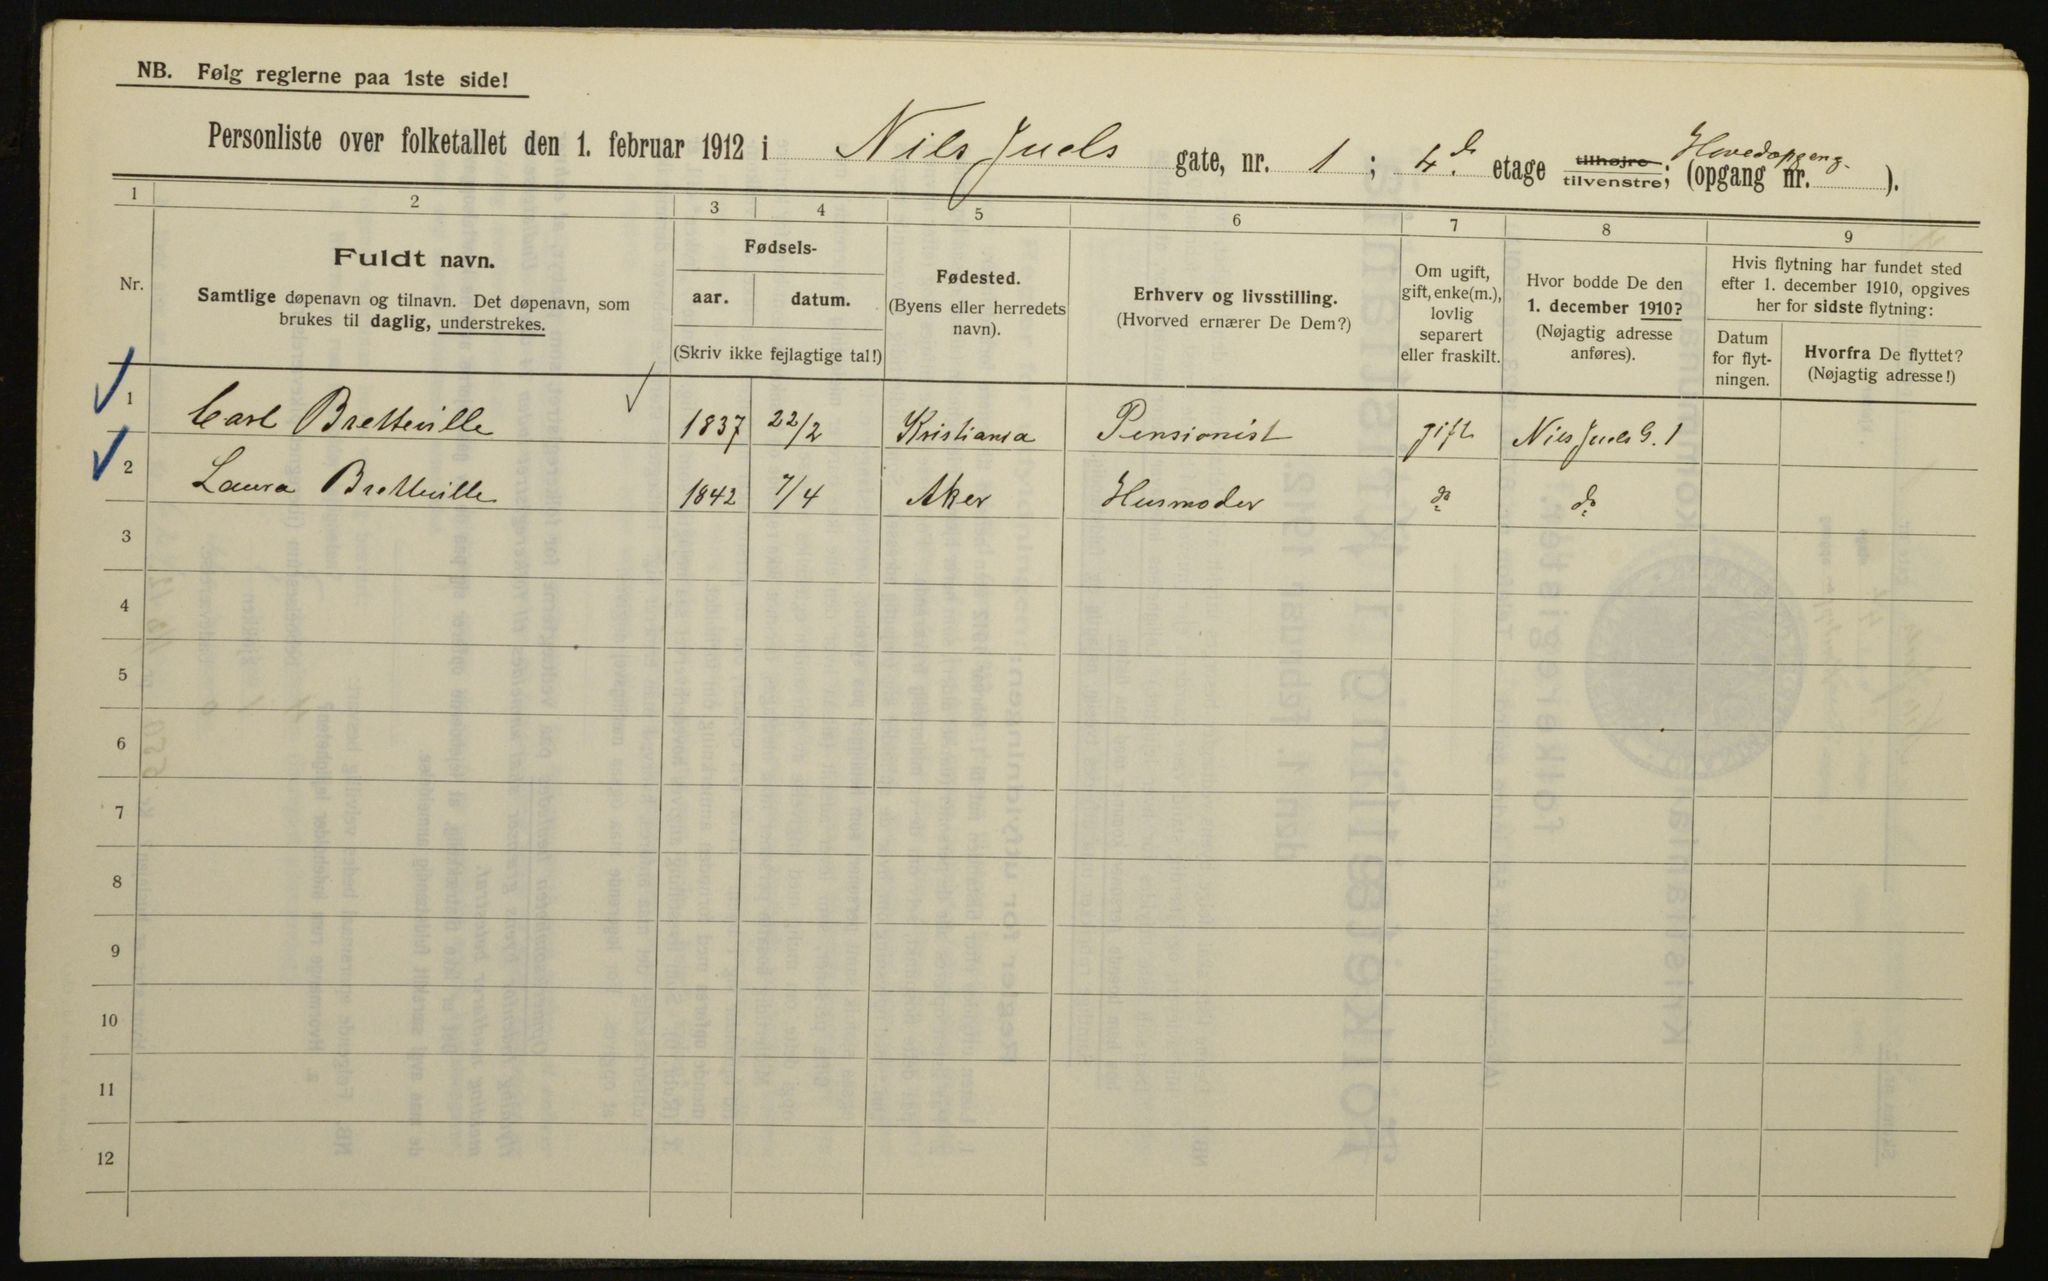 NB. Følg reglerne paa 1ste side!
Personliste over folketallet den 1. februar 1912 i Nils Juels gate, nr. 1 ; 4de. etage tilhøjre tilvenstre; (opgang nr. Hovedopgang. ).
1 2 3 4 5 6 7 8 9
Nr.
Fuldt navn.
Samtlige døpenavn og tilnavn. Det døpenavn, som
brukes til daglig, understrekes.
Fødsels-
aar. datum.
(Skriv ikke fejlagtige tal!)
Fødested.
(Byens eller herredets
navn).
Erhverv og livsstilling.
(Hvorved ernærer De Dem?)
Om ugift,
gift, enke(m.),
lovlig
separert
eller fraskilt.
Hvor bodde De den
1. december 1910?
(Nøjagtig adresse
anføres).
Hvis flytning har fundet sted
efter 1. december 1910, opgives
her for sidste flytning:
Datum
for flyt-
ningen.
Hvorfra De flyttet?
(Nøjagtig adresse!)
1 Carl Bretteville 1837 22/2 Kristiania Pensionist gift Niels Juels G. 1
2 Laura Bretteville 1842 7/4 Aker Husmoder do do
3
4
5
6
7
8
9
10
11
12